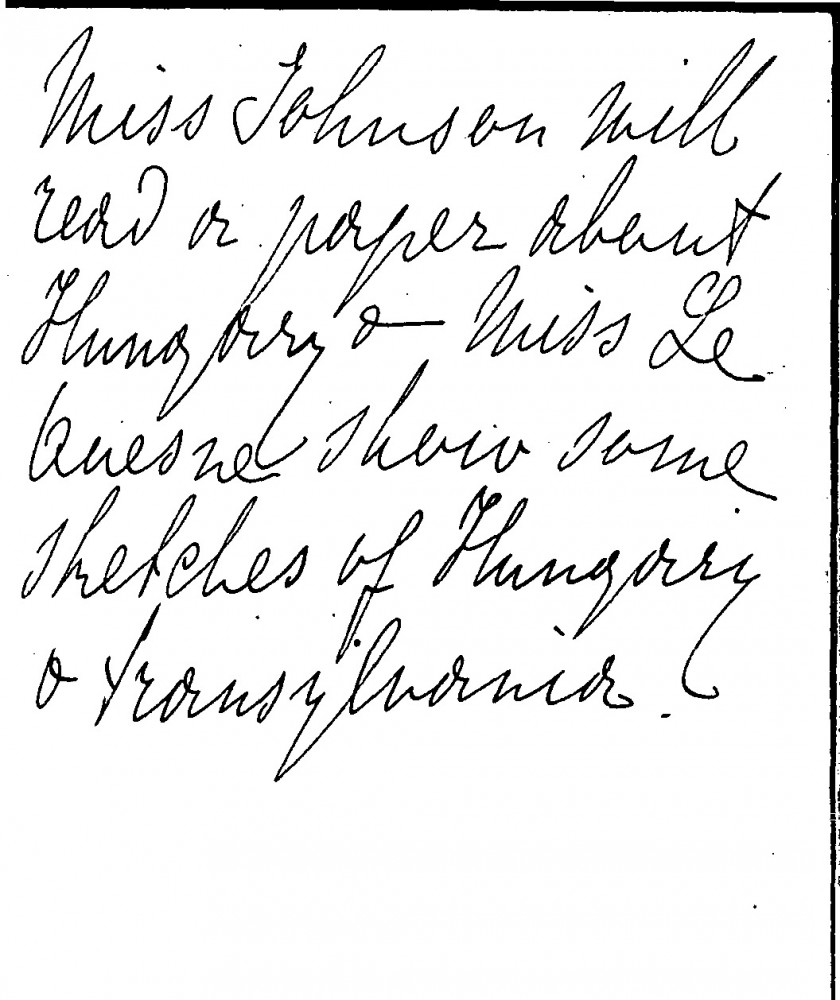 Miss Johnson will
read a paper about
Hungary & Miss Le
Quesne show some
sketches of Hungary
& Transylvania.